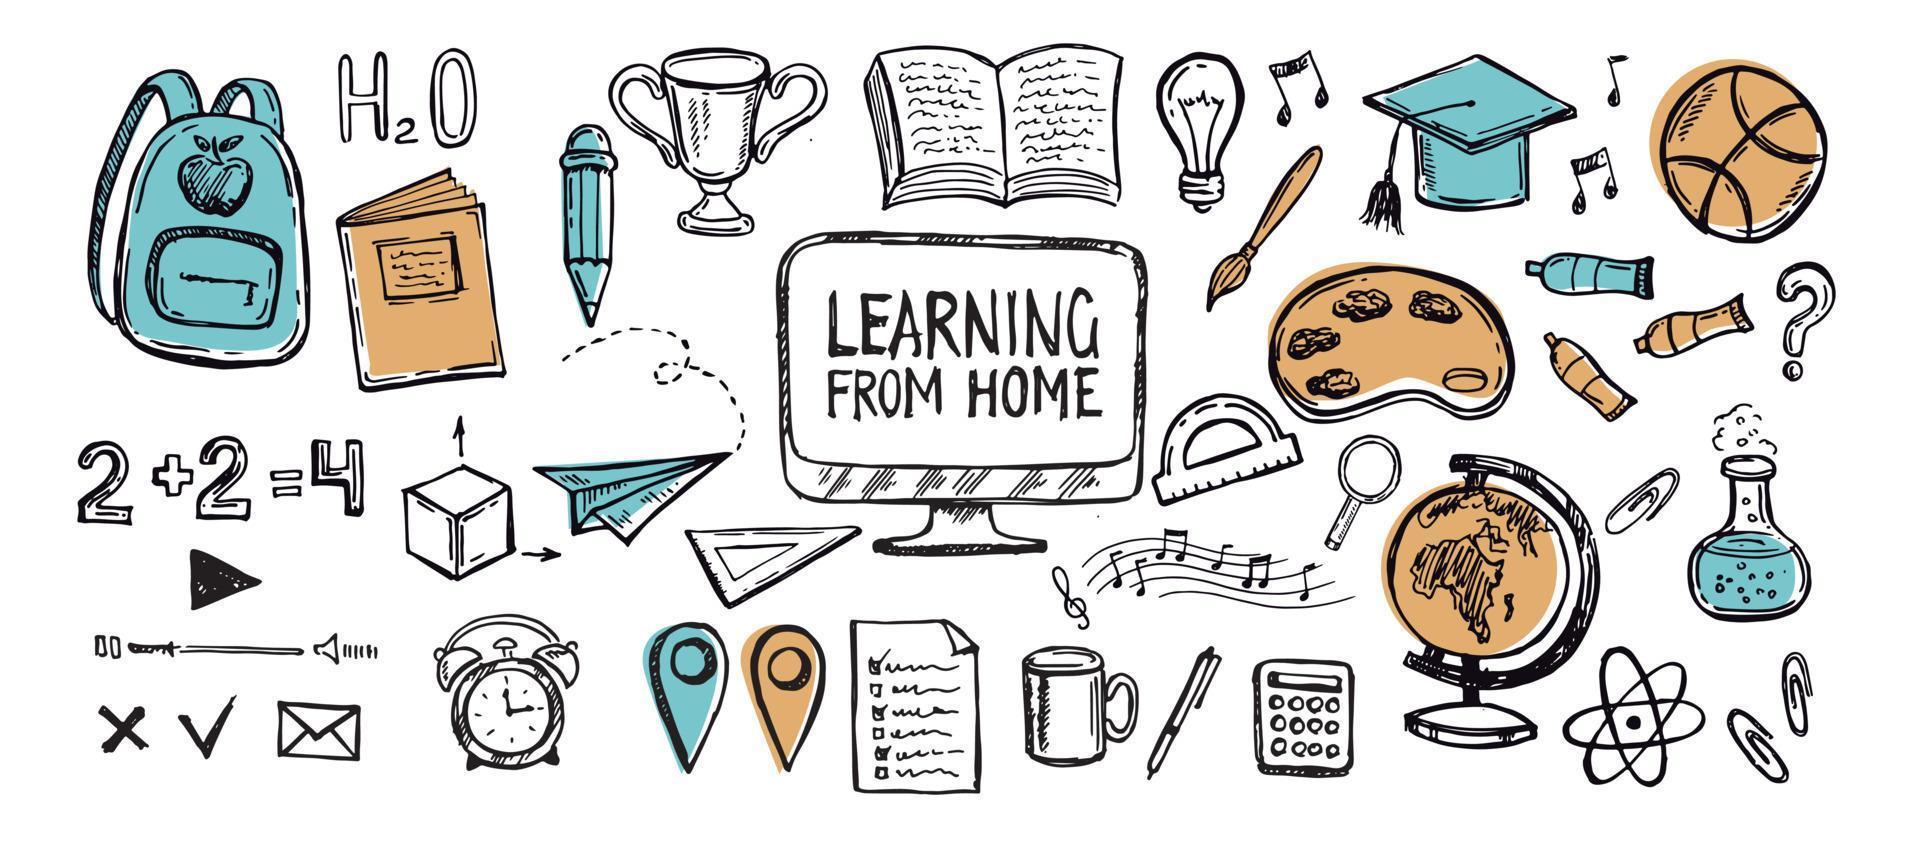 H₂O
LEARNING
FROM HOME
2+2=4
?